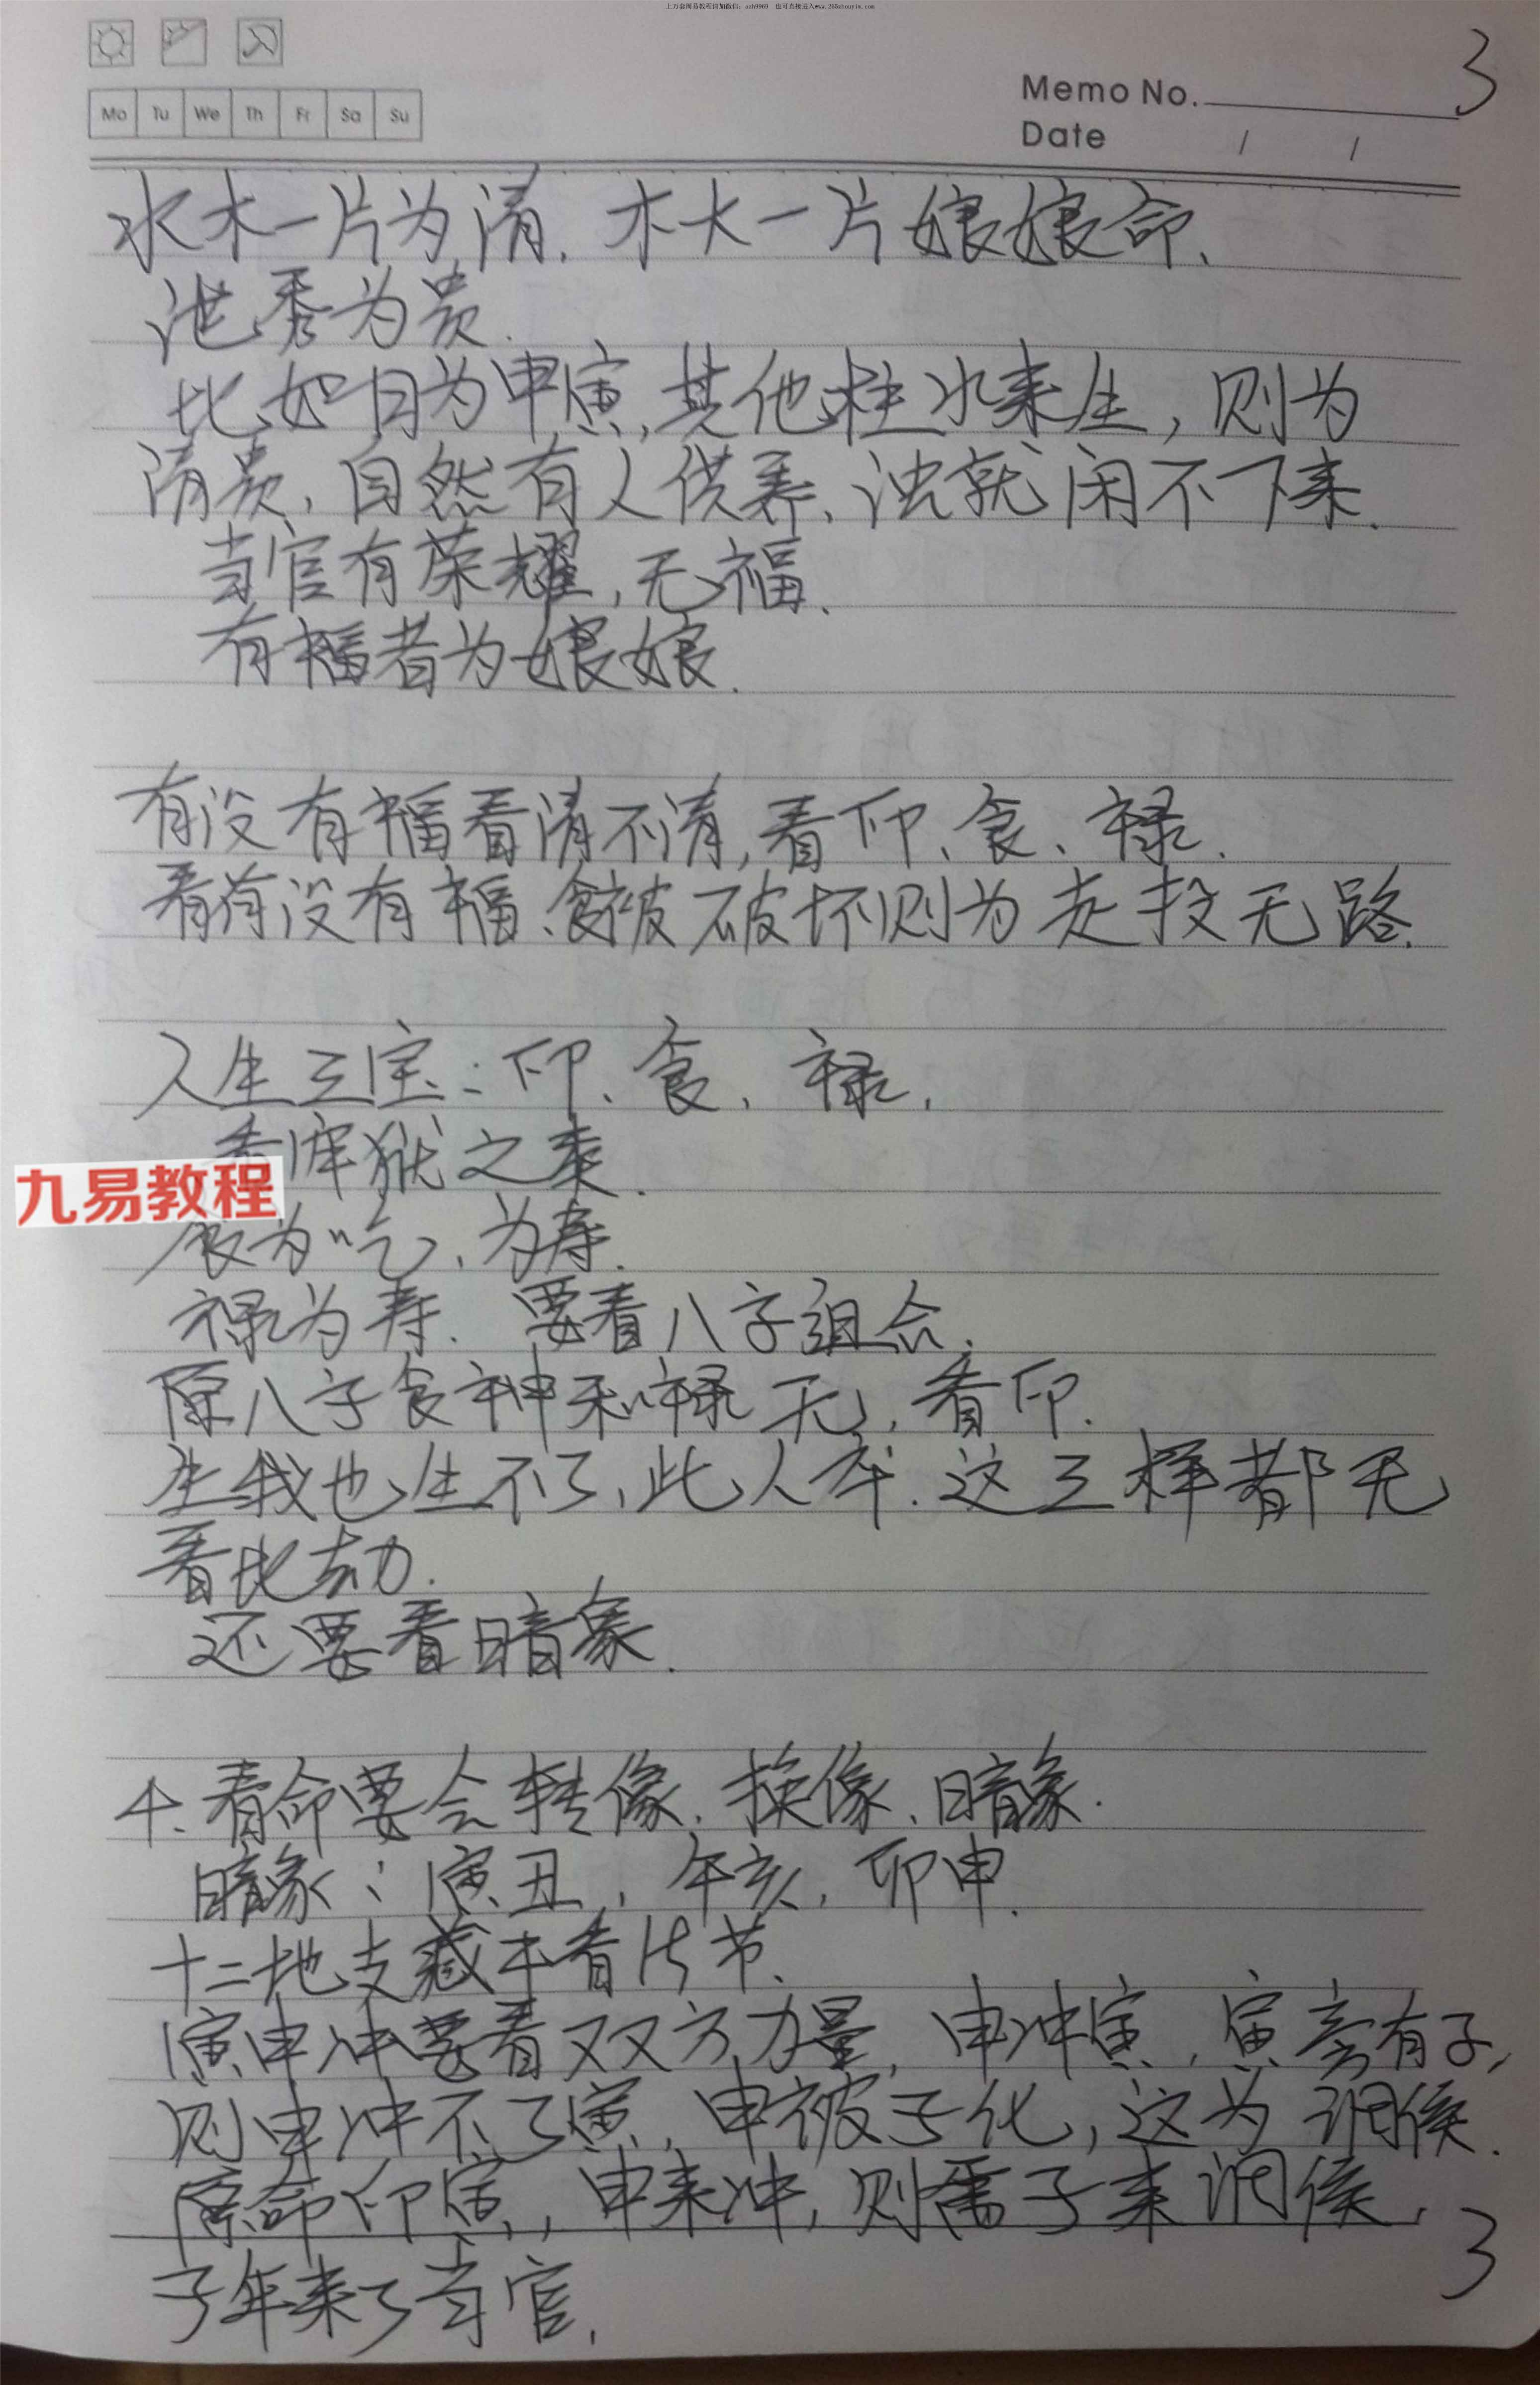 上万套周易教程请加微信：axh9969 也可直接进入www.265zhouyiw.com
3
Memo No.
Mo Tu We Th Fr Sa Su
Date / /
水木一片为清.木火一片娘娘命、
泄秀为贵.
比如日为甲寅,其他柱水来生,则为
清贵,自然有人供养、浊就闲不下来.
当官有荣耀,无福、
有福者为娘娘.
有没有福看清不清,看印、食、禄.
看有没有福、食被破坏则为走投无路.
人生三宝:印、食、禄,
看牢狱之素.
九易教程
食为吃,为寿.
禄为寿. 要看八字组合.
原八字食神和禄无,看印.
生我也生不了,此人卒.这三样都无
看比劫.
还要看暗象.
4、看命要会转像、换像、暗象.
暗象:寅丑,午亥,卯申.
十二地支藏干看代节、
寅申冲要看双方力量,申冲寅,寅旁有子,
则申冲不了寅,申被子化,这为调候.
原命印寅,申来冲,则需子来调候,
子年来了当官.
3